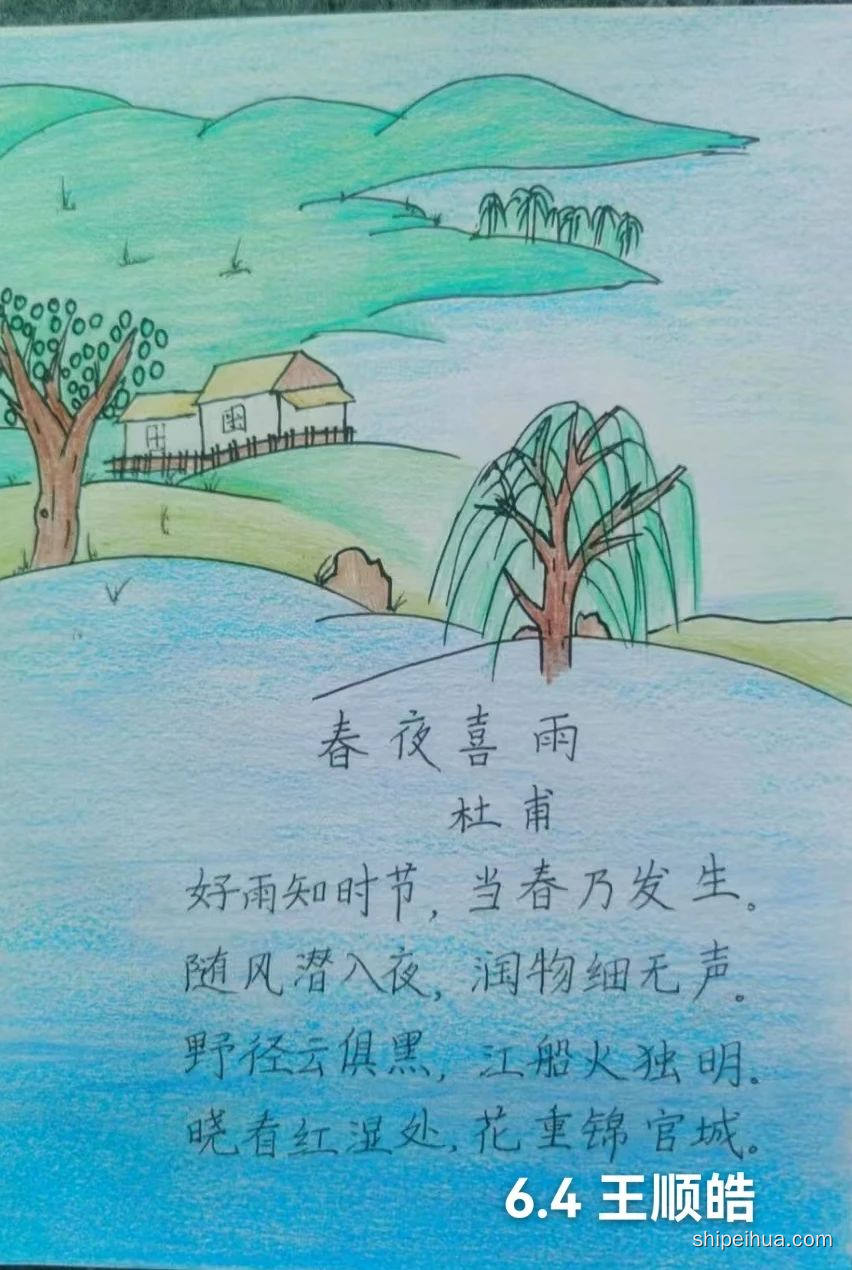 春夜喜雨
杜甫
好雨知时节,当春乃发生。
随风潜入夜,润物细无声。
野径云俱黑,江船火独明。
晓看红湿处,花重锦官城。
6.4 王顺皓
shipeihua.com